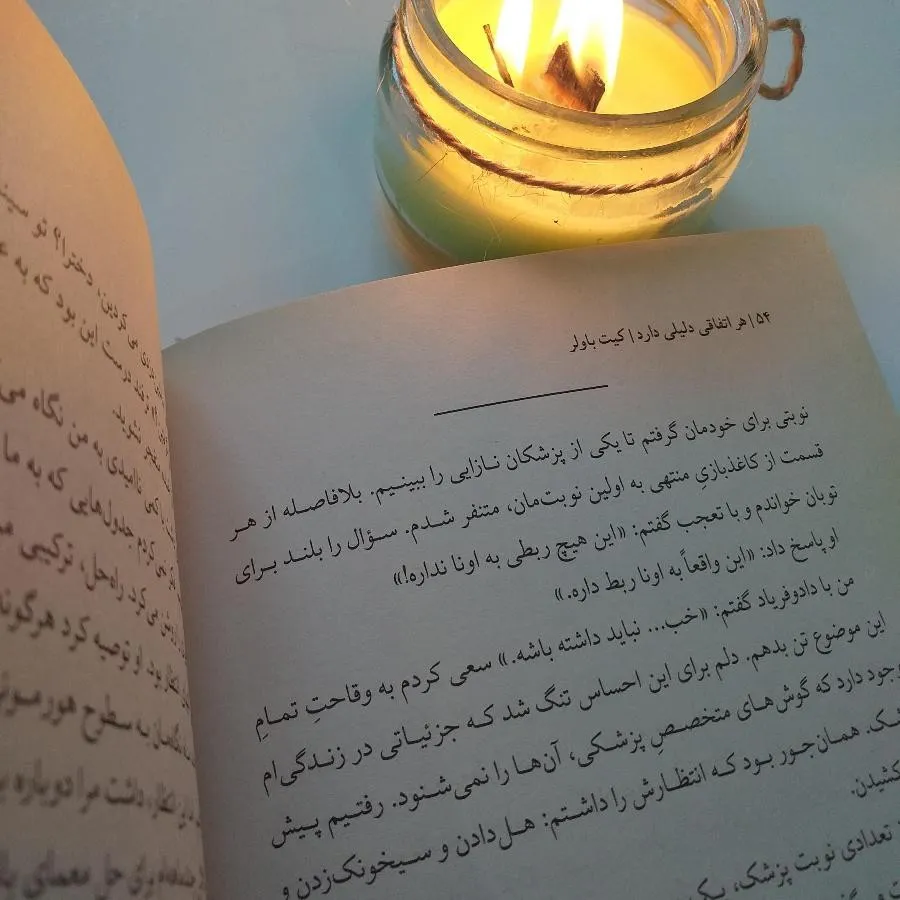 ۵۴ | هر اتفاقی دلیلی دارد | کیت باولر
نوبتی برای خودمان گرفتم تا یکی از پزشکان نازایی را ببینیم. بلافاصله از هر
قسمت از کاغذبازیِ منتهی به اولین نوبت‌مان، متنفر شدم. سؤال را بلند برای
توبان خواندم و با تعجب گفتم: «این هیچ ربطی به اونا نداره!»
او پاسخ داد: «این واقعاً به اونا ربط داره.»
من با دادوفریاد گفتم: «خب... نباید داشته باشه.» سعی کردم به وقاحتِ تمامِ
این موضوع تن بدهم. دلم برای این احساس تنگ شد که جزئیاتی در زندگی‌ام
وجود دارد که گوش‌های متخصصِ پزشکی، آن‌ها را نمی‌شنود. رفتیم پیش
همان‌جور بود که انتظارش را داشتم: هل‌دادن و سیخونک‌زدن و
کشیدن.
تعدادی نوبت پزشک، یک
می‌کردین، دخترا؟ تو
درست این بود که به
نشوید.
ناامیدی به من نگاه می
می‌کردم جدول‌هایی که به ما
می‌کرد. راه‌حل، ترکیبی
بود. او توصیه کرد هرگونه
به سطوح هورمونی
انتظار داشت مرا دوباره
برای حل معمای